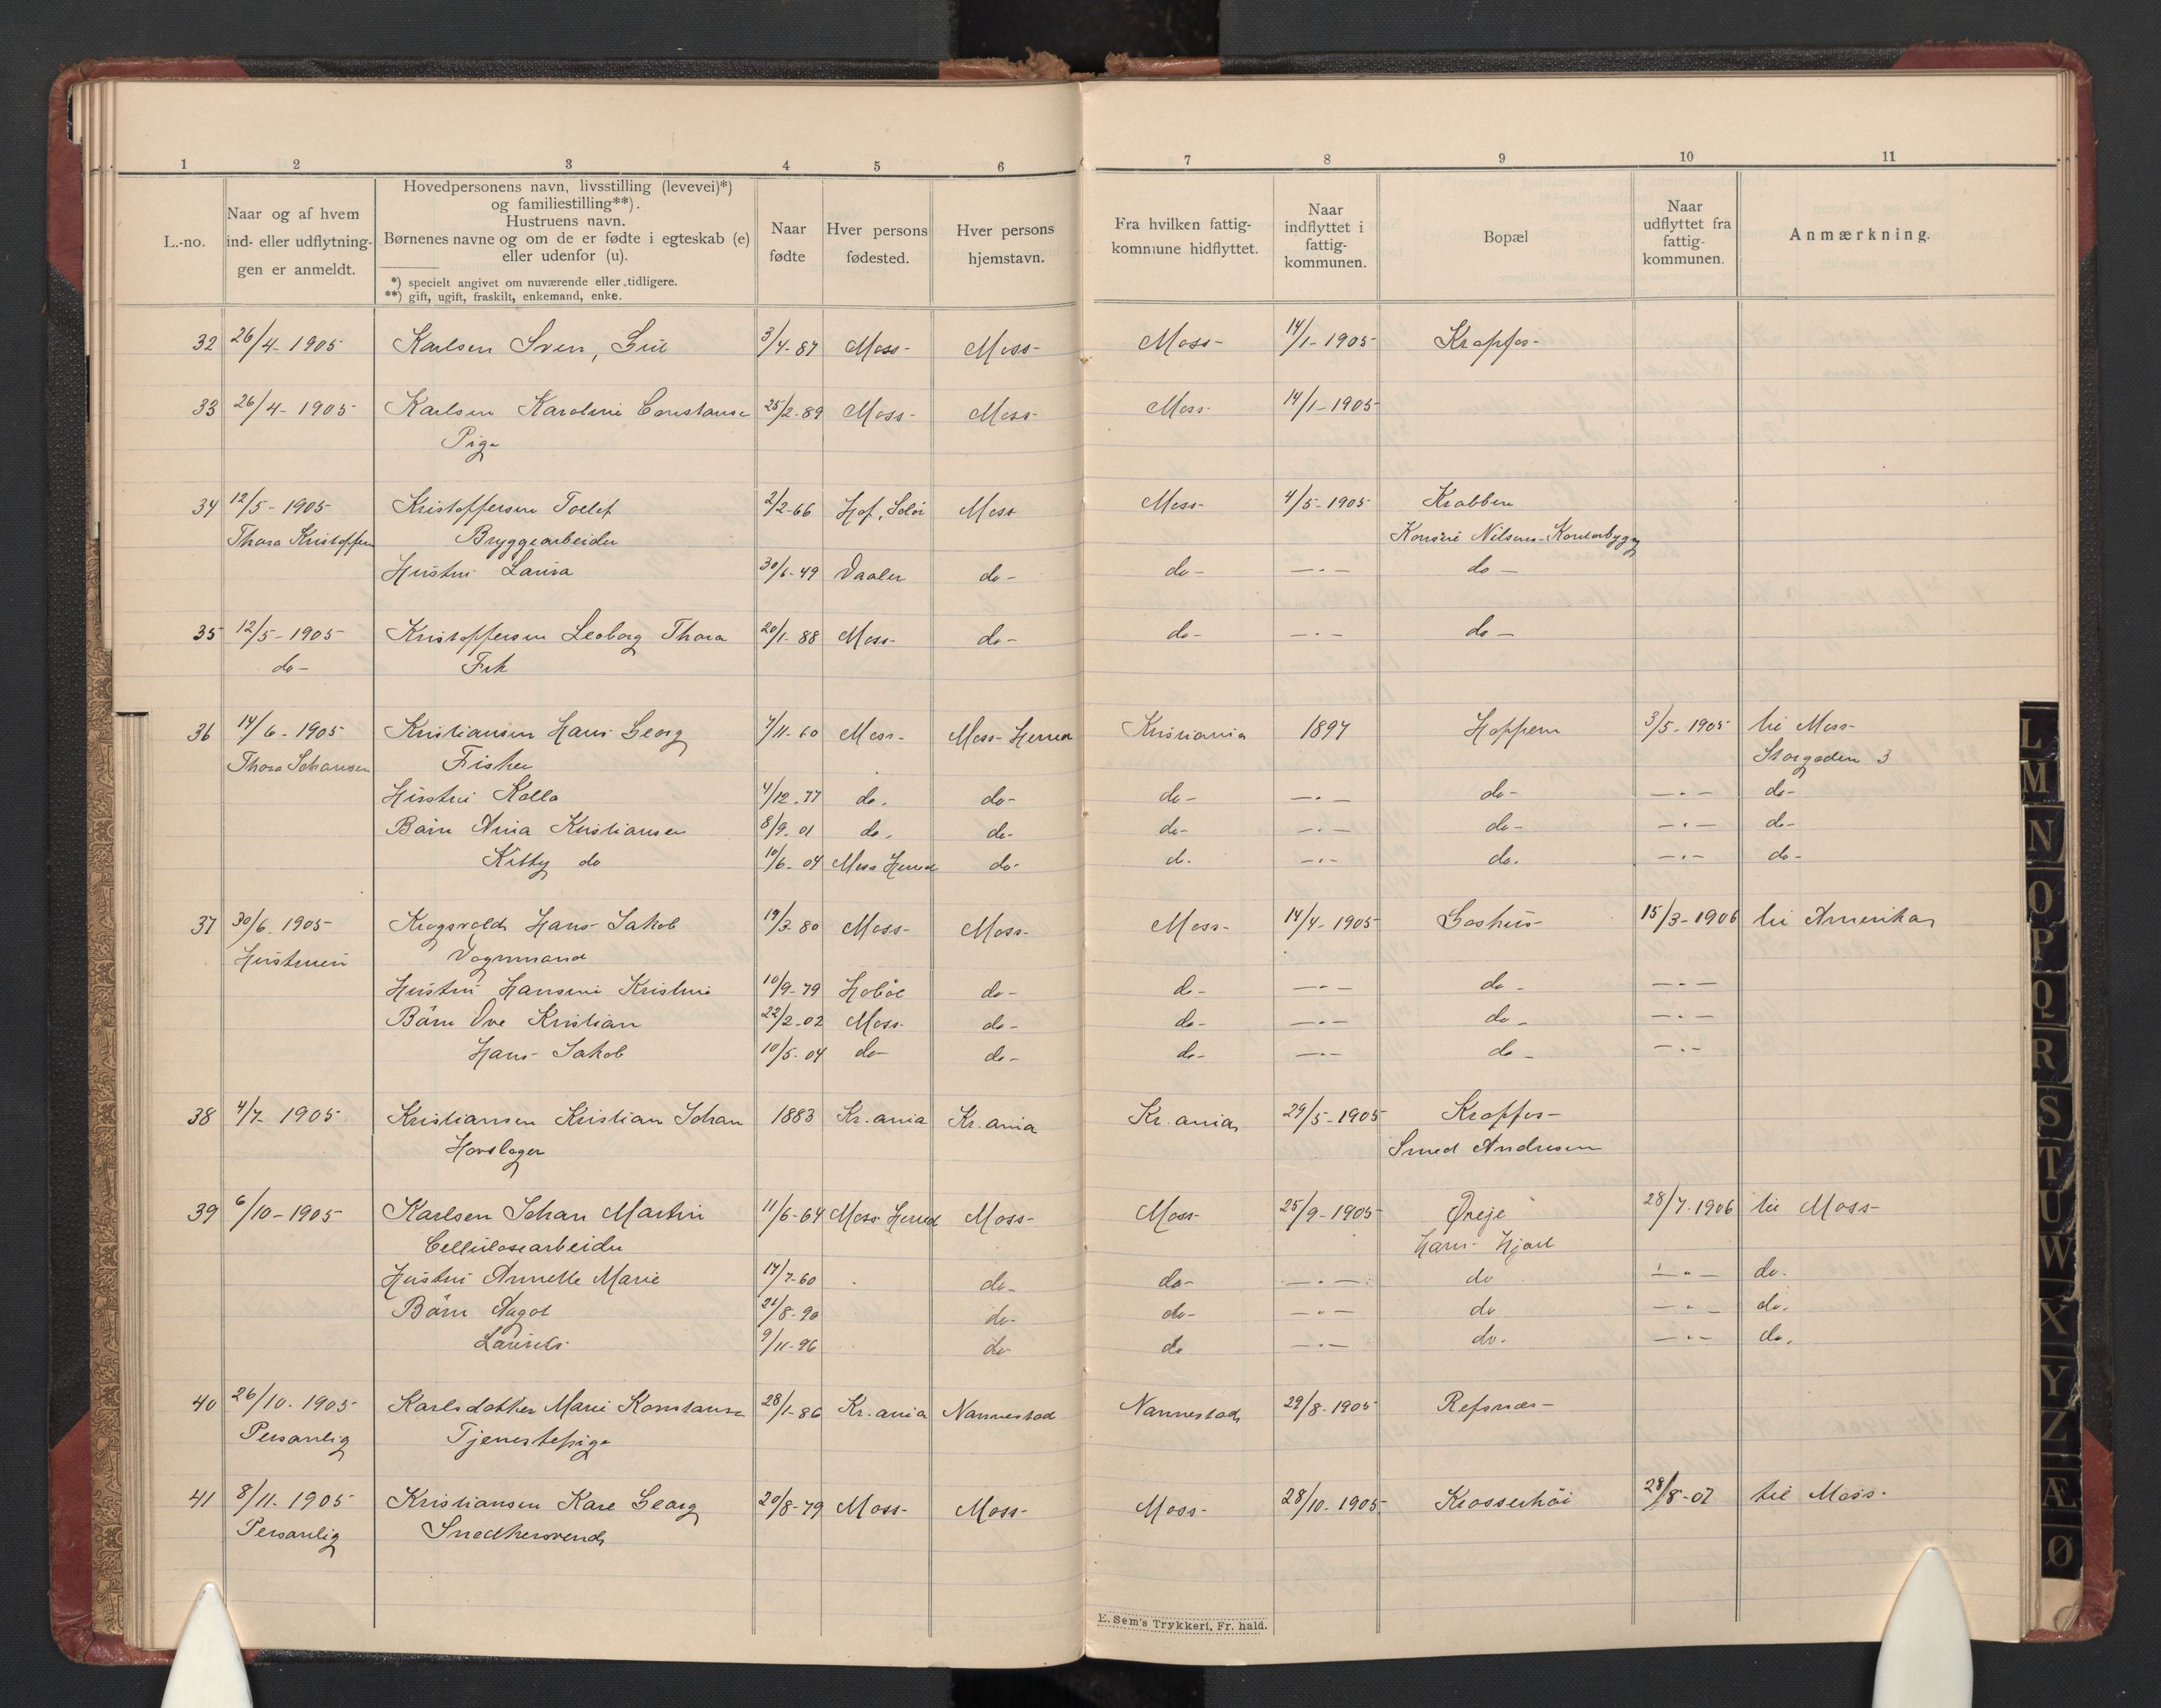 1 2 3 4 5 6 7 8 9 10 11
L.-no.
Naar og af hvem
ind- eller udflytnin-
gen er anmeldt.
Hovedpersonens navn, livsstilling (levevei)*)
og familiestilling**).
Hustruens navn.
Børnenes navne og om de er fødte i egteskab (e)
eller udenfor (u).
*) specielt angivet om nuværende eller tidligere.
**) gift, ugift, fraskilt, enkemand, enke.
Naar
fødte
Hver persons
fødested.
Hver persons
hjemstavn.
Fra hvilken fattig-
kommune hidflyttet.
Naar
indflyttet i
fattig-
kommunen.
Bopæl
Naar
udflyttet fra
fattig-
kommunen.
Anmærkning.
32 26/4-1905 Karlsen Sven, 3/4-87 Moss- Moss- Moss- 14/1-1905 Krapfos-
33 26/4-1905 Karlsen Karoline Constanse 25/2-89 Moss- Moss- Moss- 14/1-1905
Pige
34 12/5-1905 Kristoffersen Toelef 2/2-66 Hof, Solör Moss Moss- 4/5-1905 Krabben
Thora Kristoffersen Bryggearbeider Nilsens
Hustru Laura 30/6-49 Vaaler do- do- -"- do-
35 12/5-1905 Kristoffersen Leoborg Thora 20/1-88 Moss- do- do- -"- do-
do- Frk
36 14/6-1905 Kristiansen Hans Georg 7/11-60 Moss- Moss Herred Kristiania 1897 Hoppern 3/5-1905 til Moss-
Thora Johansen Fisker Storgaden 3
Hustru Kalla 4/12-77 do. do- do- -"- do- -"- do-
Børn Anna Kristiansen 8/9-01 do. do- do- -"- do- -"- do-
Kitty do 10/6-04 Moss Herred do- do- -"- do. -"- do-
37 30/6 1905 Krogsvold Hans Jakob 19/3-80 Moss- Moss- Moss- 14/4-1905 Gashus- 15/3-1906 til Amerika
Hustruen Vognmand
Hustru Hansine Kristine 10/9-79 Hobøl do- do- -"- do- -"-
Børn Ove Kristian 22/2-02 Moss- do- do- -"- do- -"-
Hans Jakob 10/5-04 do- do- do- -"- do- -"-
38 4/7 1905 Kristiansen Kristian Johan 1883 Kr.ania Kr.ania Kr.ania 29/5-1905 Krapfos-
Hovslager Smed Andresen
39 6/10-1905 Karlsen Johan Martin 11/6-64 Moss Herred Moss- Moss- 25/9-1905 Øreje 28/7-1906 til Moss-
Cellulosearbeider Hans
Hustru Annette Marie 17/7-60 do- do- -"- do -"- do.
Børn Aagot 21/8-90 do- do- -"- do -"- do.
Laurits 9/11-96 do do -"- do. -"- do.
40 26/10-1905 Karlsdatter Marie Konstanse 28/1-86 Kr.ania Nannestad Nannestad 29/8-1905 Refsnæs-
Personlig Tjenestepige
41 8/11-1905 Kristiansen Kare Georg 20/8-79 Moss- Moss- Moss- 28/10-1905 Krosserhöi 28/8-07 til Moss-
Personlig Snedkersvend
E. Sem's Trykkeri, Fr. hald.
L
M
N
O
P
Q
R
S
T
U
W
X
Y
Z
Æ
Ø